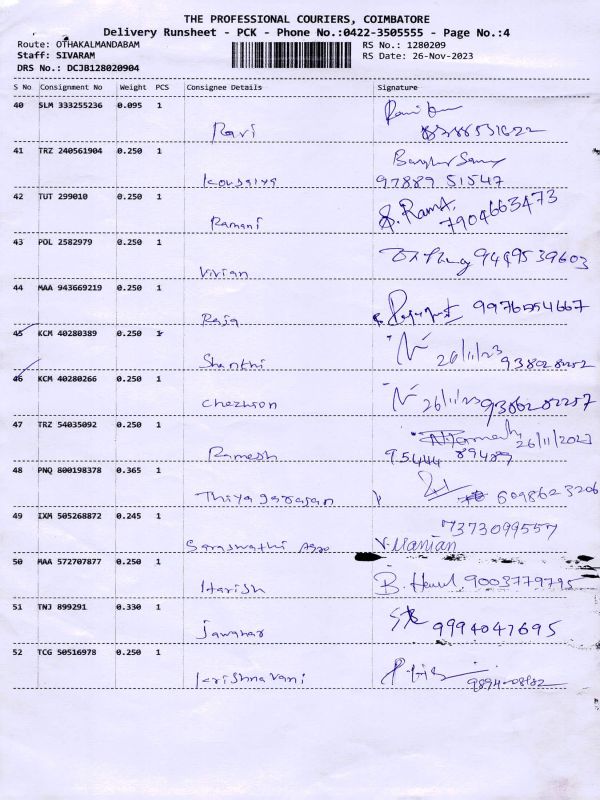 THE PROFESSIONAL COURIERS, COIMBATORE
Delivery Runsheet - PCK - Phone No.:0422-3505555 - Page No.:4
Route: OTHAKALMANDABAM
RS No.: 1280209
Staff: SIVARAM
RS Date: 26-Nov-2023
DRS No.: DCJB128020904
S No Consignment No Weight PCS Consignee Details Signature
40 SLM 333255236 0.095 1
Ravi
41 TRZ 240561904 0.250 1
Kousalya 97889 51547
42 TUT 299010 0.250 1
Ramani 7904663473
43 POL 2582979 0.250 1
Vivian 9449539603
44 MAA 943669219 0.250 1
Raja 9976554667
45 KCM 40280389 0.250 1
Shanthi 26/11/23
46 KCM 40280266 0.250 1
Chezhian 26/11/23 9386282257
47 TRZ 54035092 0.250 1
26/11/2023
Ramesh 95444 89489
48 PNQ 800198378 0.365 1
Thiyagarajan 6098623206
49 IXM 505268872 0.245 1
7373099557
Saraswathi Agro V. Manian
50 MAA 572707877 0.250 1
Harish 9003779795
51 TNJ 899291 0.330 1
Jawahar 9994047695
52 TCG 50516978 0.250 1
Krishnavani